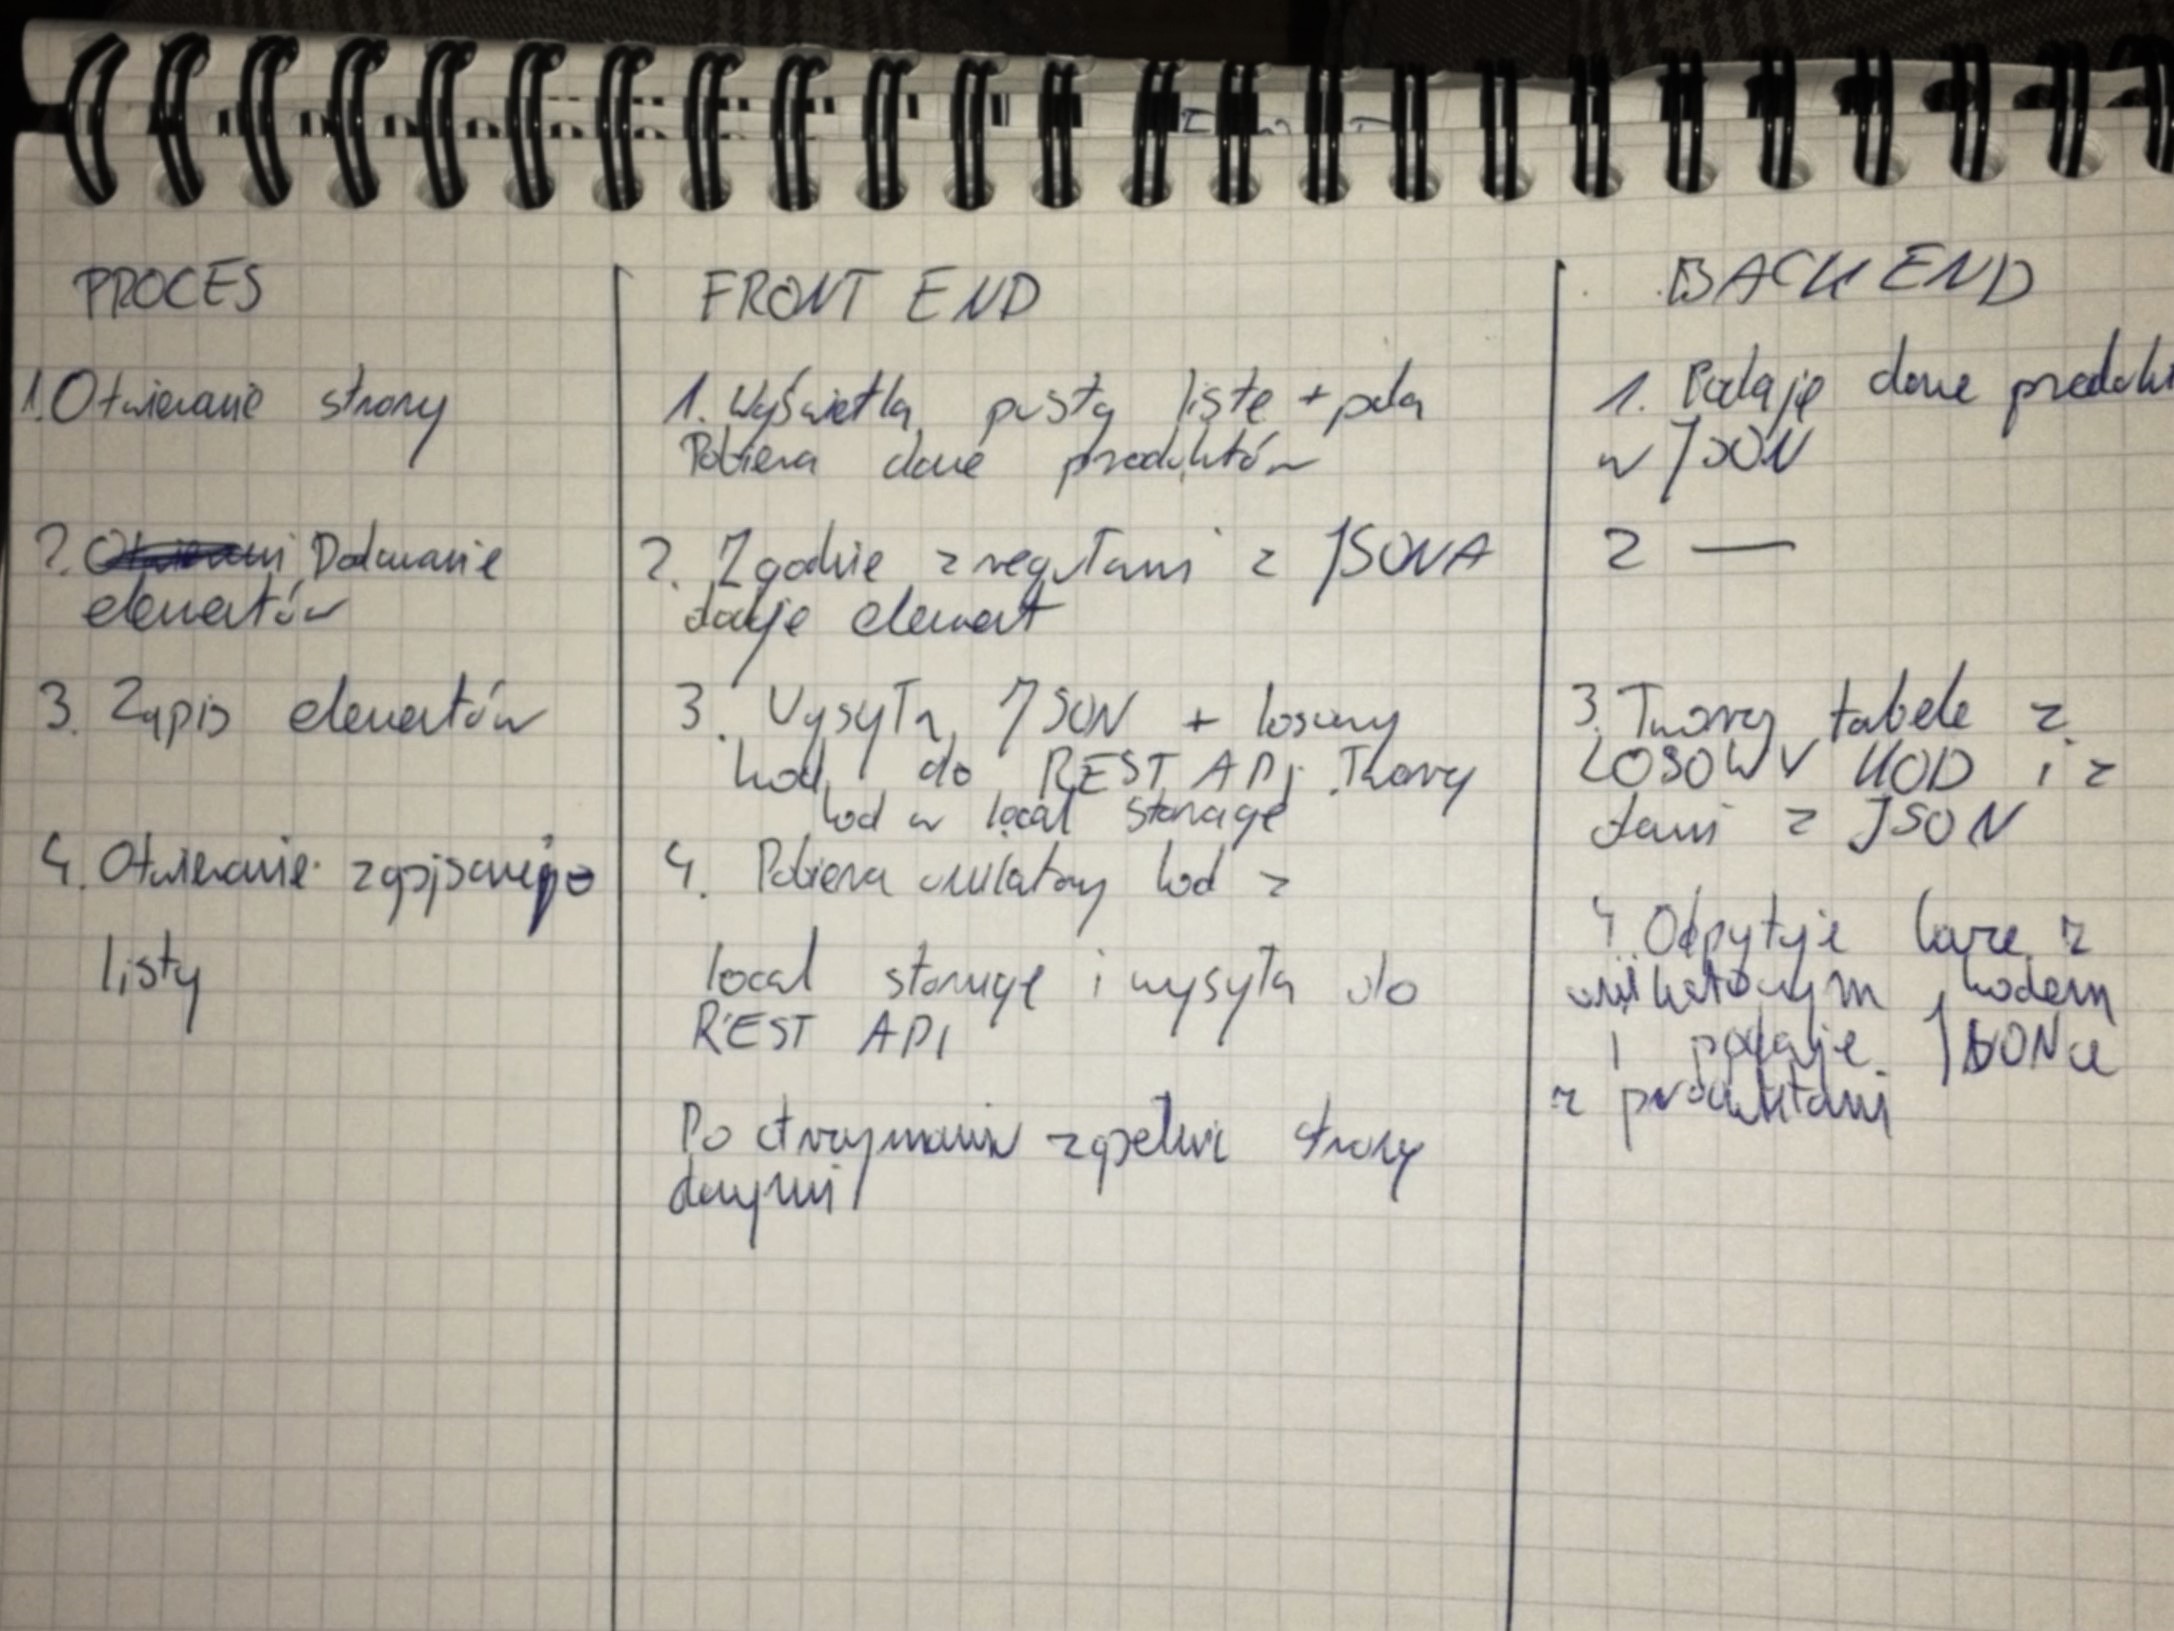 PROCES
1. Otwieranie strony
2. Dodawanie
elementów
3. Zapis elementów
4. Otwieranie zapisanego
listy
FRONT END
1. Wyświetla pustą listę + pola
Pobiera dane produktów
2. Zgodnie z regułami z JSONA
dodaje element
3. Wysyła JSON + losowy
kod do REST API. Tworzy
kod w local storage
4. Pobiera unikatowy kod z
local storage i wysyła do
REST API
Po otrzymaniu zapełnia stronę
danymi
BACK END
1. Podaję dane produkt
w JSON
2 —
3. Tworzy tabele z
LOSOWY KOD i z
dani z JSON
4. Odpytuje bazę z
unikatowym kodem
i podaje JSONa
z produktami